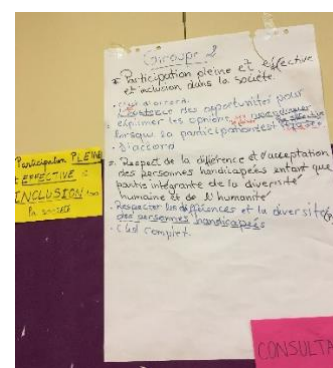 Groupe 2
* Participation pleine et effective
et inclusion dans la société.
- C'est d'accord.
des opportunités pour
exprimer les opinions
lorsque sa participation est
- D'accord
* Respect de la différence et d'acceptation
des personnes handicapées entant que
partie intégrante de la diversité
humaine et de l'humanité
- Respecter les différences et la diversité
des personnes handicapées
- C'est complet.
Participation PLEINE
EFFECTIVE
INCLUSION
la société
CONSULTA